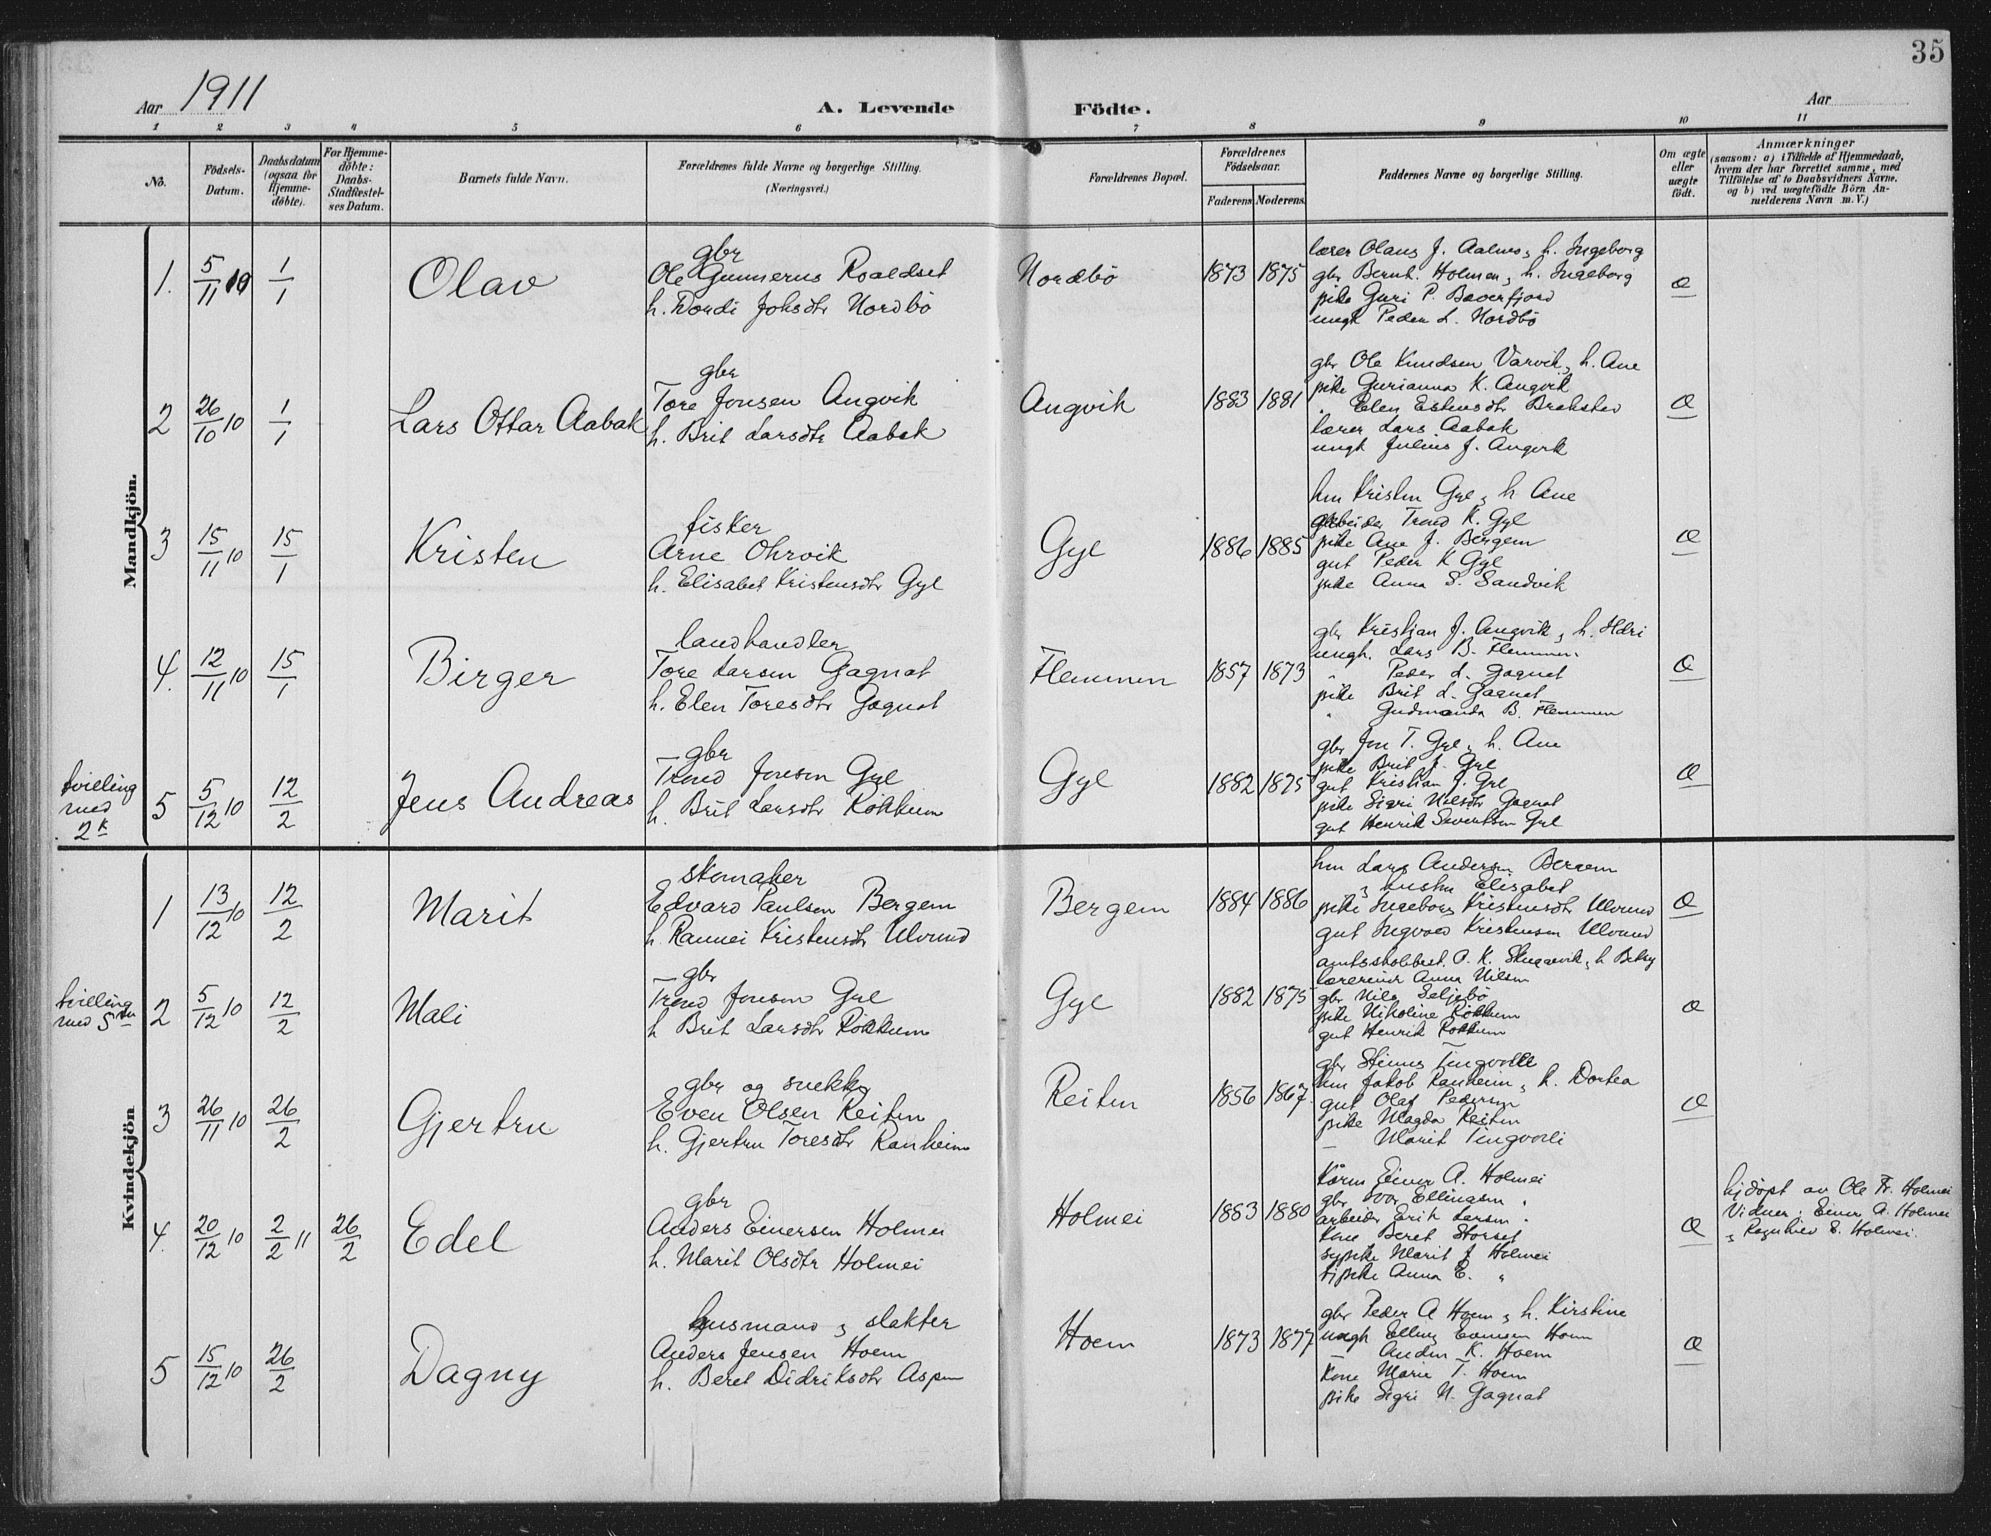 35
Aar 1911
A. Levende Födte.
Aar
1 2 3 4 5 6 7 8 9 10 11
No.
Födsels-
Datum.
Daabsdatum
(ogsaa for
Hjemme-
döbte).
For Hjemme-
döbte:
Daabs-
Stadfæstel-
ses Datum.
Barnets fulde Navn.
Forældrenes fulde Navne og borgerlige Stilling.
(Næringsvei.)
Forældrenes Bopæl.
Forældrenes
Födselsaar.
Faderens Moderens.
Faddernes Navne og borgerlige Stilling.
Om ægte
eller
uægte
födt.
Anmærkninger
(saasom: a) i Tilfælde af Hjemmedaab,
hvem der har forrettet samme, med
Tilföielse af to Daabsvidners Navne.
og b) ved uægtefödte Börn An-
melderens Navn m. V.)
Mandkjön.
1. 5/11 10 1/1 Olav
gbr
Ole Gunnerus Roaldset
h. Dordi Johsdtr Nordbö
Nordbö 1873 1875
lærer Olaus J. Aalmo, h. Ingeborg
gbr Bernt. Holmen, h. Ingeborg
pike Guri P. Bæverfjord
ungk Peder L. Nordbö
2 26/10 10 1/1 Lars Ottar Aabak
gbr
Tore Jonsen Angvik
h. Brit Larsdtr Aabak
Angvik 1883 1881
gbr Ole Knudsen Varvik, h. Ane
pike Gurianna K. Angvik
" Elen Estensdtr Brekstad
lærer Lars Aabak
ungk Julius J. Angvik
3 15/11 10 15/1 Kristen
fisker
Arne Ohrvik
h. Elisabet Kristensdtr Gyl
Gyl 1886 1885
hm Kristen Gyl, h Ane
arbeider Trond K. Gyl
pike Ane J. Bergem
gut Peder K Gyl
pike Anna S. Sandvik
4. 12/11 10 15/1 Birger
landhandler
Tore Larsen Gagnat
h. Elen Toresdtr Gagnat
Flemmen 1857 1873
gbr Kristian J. Angvik, h. Ildri
ungk. Lars B. Flemmen.
" Peder L. Gagnat
pike Brit L. Gagnat
" Gudmanda B. Flemmen
tvilling
med
2 k
5 5/12 10 12/2 Jens Andreas
gbr
Trond Jonsen Gyl
h. Brit Larsdtr Rökkum
Gyl 1882 1875
gbr Jon T. Gyl, h. Ane
pike Brit J. Gyl
gut Kristian J. Gyl
pike Sigri Nilsdtr Gagnat
gut Henrik Sivertsen Gyl
Kvindekjön
1 13/12 10 12/2 Marit
skomaker
Edvard Paulsen Bergem
h. Rannei Kristensdtr Ulvund
Bergem 1884 1886
hm Lars Andersen Bergem
, hustru Elisabet
pike Ingeborg Kristensdtr Ulvund
gut Ingvald Kristensen Ulvund
tvilling
med 5
2 5/12 10 12/2 Mali
gbr
Trond Jonsen Gyl
h Brit Larsdtr Rökkum
Gyl 1882 1875
lærerinde Anna Nilsen
gbr Nils Seljebö
pike Nikoline Rökkum
gut Henrik Rökkum
3 26/11 10 26/2 Gjertru
gbr og snekker
Even Olsen Reiten
h. Gjertru Toresdtr Ranheim
Reiten 1856 1867.
gbr Steiner Tingvolli
hm Jakob Ranheim, h. Dortea
gut Olaf Pedersen
pike Magda Reiten
— Marit Tingvolli
4. 20/12 10 2/2 11 26/2 Edel
gbr
Anders Einersen Holmei
h. Marit Olsdtr Holmei
Holmei 1883 1880
Kårm Einer A. Holmei
gbr Ivar Ellingsen "
arbeider Erik Larsen "
Kone Beret Storset
sypike Marit J Holmei
tjpike Anna E. "
hjdöpt av Ole Tr. Holmei
Vidner: Einer A. Holmei
, Ragnhild E. Holmei.
5 15/12 10 26/2 Dagny
husmand , slakter
Anders Jensen Hoem
h. Beret Didriksdtr Aspen
Hoem 1873 1877
gbr Peder A Hoem, h. Kirstine
ungk Elling Evensen Hoem
— Anders K. Hoem
Kone Marie T. Hoem
pike Sigri N. Gagnat